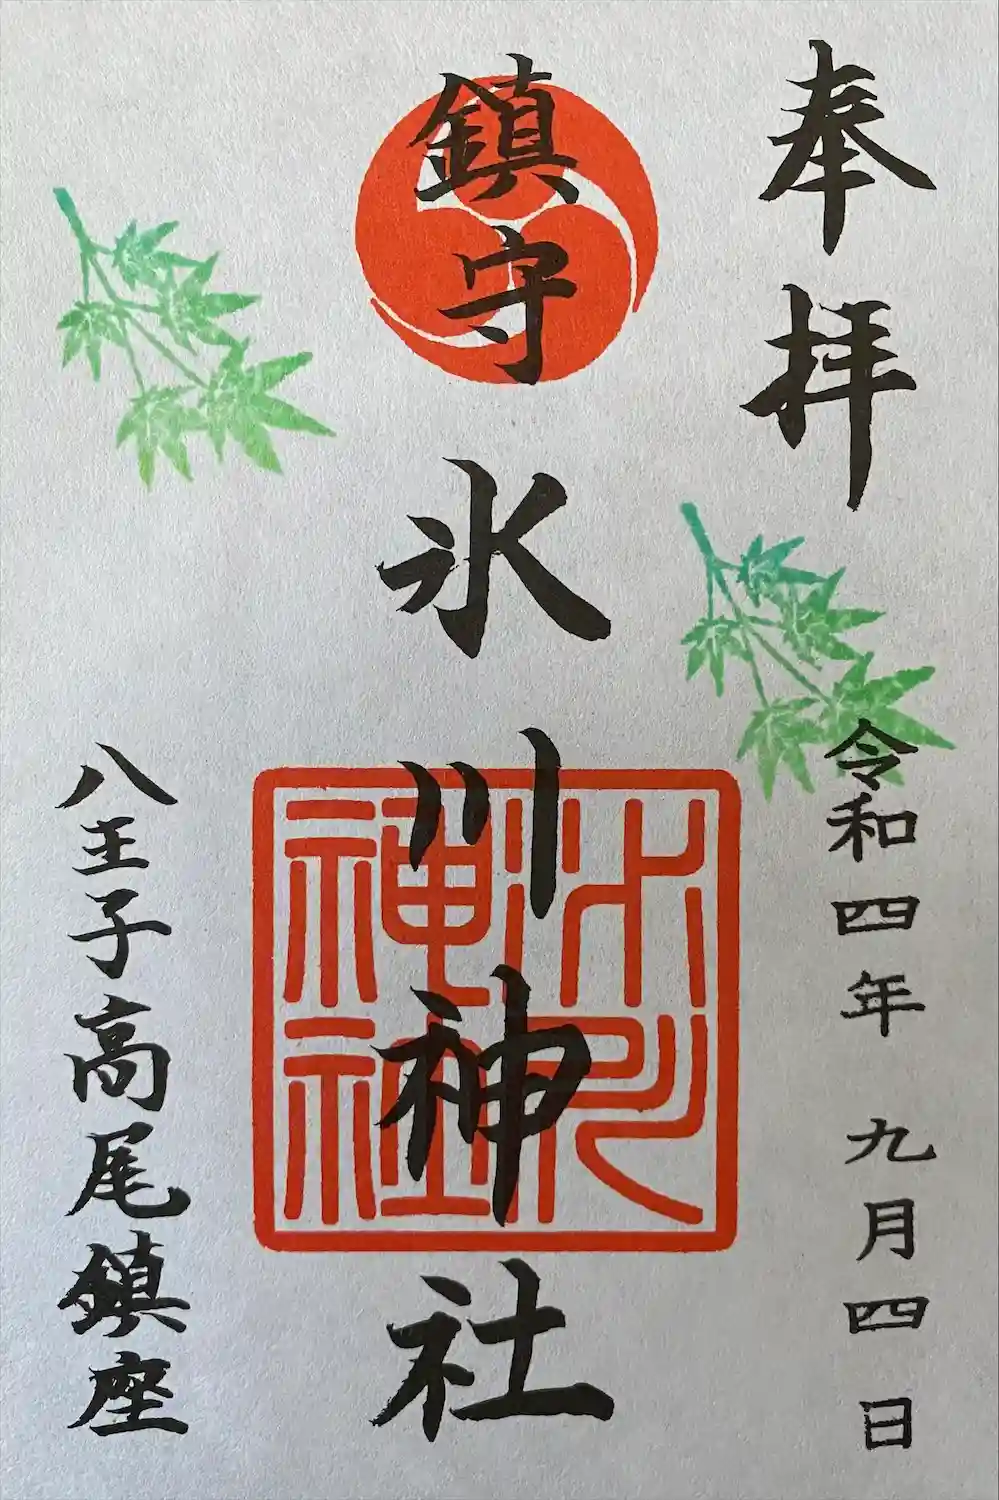 奉拝
令和四年 九月四日
鎮守氷川神社
氷川神社
八王子高尾鎮座